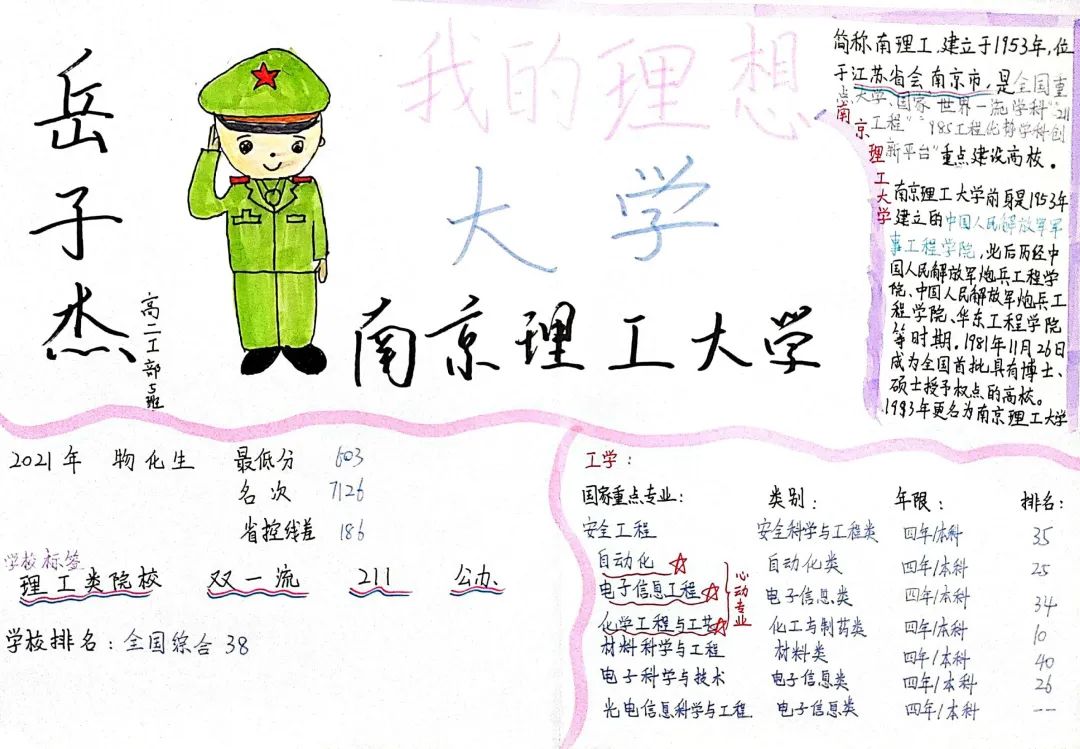 岳子杰
高二工部5班
我的理想
大学
南京理工大学
南京理工大学
简称南理工,建立于1953年,位
于江苏省会南京市,是全国重
点大学、国家"世界一流学科""211
工程""985工程优势学科创
新平台"重点建设高校。
南京理工大学前身是1953年
建立的中国人民解放军军
事工程学院,此后历经中
国人民解放军炮兵工程学
院、中国人民解放军炮兵工
程学院、华东工程学院
等时期。1981年11月26日
成为全国首批具有博士、
硕士授予权点的高校。
1993年更名为南京理工大学
2021年 物化生 最低分 603
名次 7126
省控线差 186
学校标签
理工类院校 双一流 211 公办
学校排名:全国综合 38
工学:
国家重点专业: 类别: 年限: 排名:
安全工程 安全科学与工程类 四年/本科 35
自动化 自动化类 四年/本科 25
电子信息工程 电子信息类 四年/本科 34
化学工程与工艺 化工与制药类 四年/本科 10
心动专业
材料科学与工程 材料类 四年/本科 40
电子科学与技术 电子信息类 四年/本科 26
光电信息科学与工程 电子信息类 四年/本科 ---